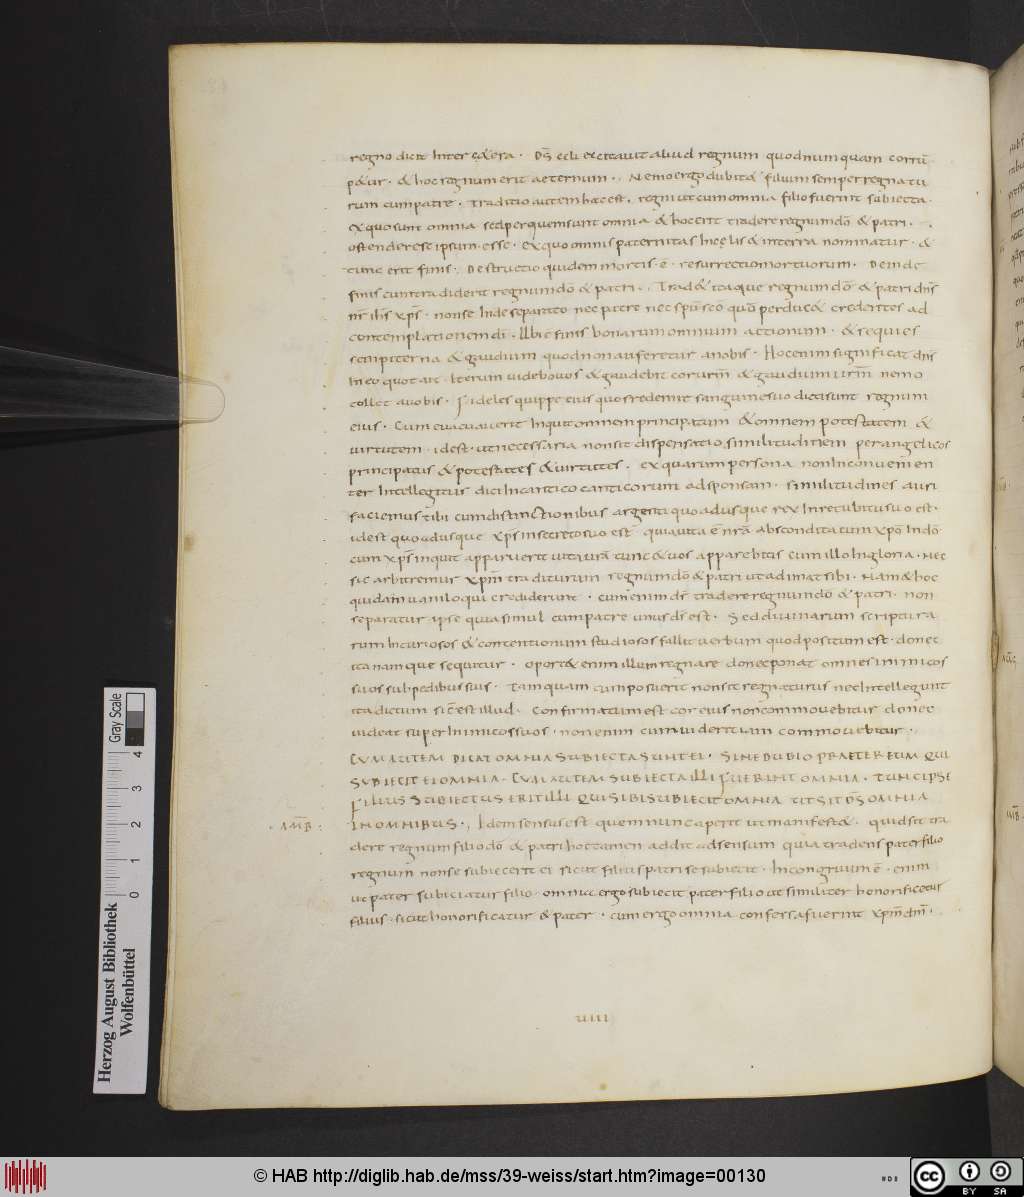 regno dicit Inter cȩtera · Dš celi excitauit aliud regnum quod num quam corrū
p&ur · & hoc regnum erit aeternum · Nemo ergo dubit& filium semper regnatu
rum cum patre · Traditio autem haec est · regni ut cum omnia filio fuerint subiecta ·
ex quo sunt omnia sed per quem sunt omnia & hoc erit tradere regnum dō & patri ·
ostendere se ipsum esse · ex quo omnis paternitas In cȩlis & in terra nominatur · &
tunc erit finis · Destructio quidem mortis · ē · resurrectio mortuorum · Deinde
finis cum tradiderit regnum dō & patri · Trad& itaque regnum dō & patri dns̄
nr̄ ihs xp̄s · non se Inde separato nec patre nec spū scō quō perduc& credentes ad
contemplationem dī · Ubi est finis bonarum omnium actionum · & requies
sempiterna & gaudium quod non auferetur a nobis · Hoc enim significat dns̄
In eo quot ait · Iterum uidebo uos & gaudebit cor urm̄ & gaudium urm̄ nemo
tollet a uobis · Fideles quippe eius quos redemit sanguine suo dicti sunt regnum
eius · Cum euacuauerit Inquit omnem principatum & omnem potestatem &
uirtutem · id est · ut necessaria non sit dispensatio similitudinem per angelicos
principatus & potestates & uirtutes · ex quarum persona non Inconuenien
ter Intellegitur dici In cantico canticorum ad sponsam · similitudines auri
faciemus tibi cum distinctionibus argenti quo adusque rex In recubitu suo est ·
id est quo adusque xp̄s In secreto suo est · quia uita ē nr̄a abscondita cum xp̄o In dō ·
cum xp̄s inquit apparuerit uita ur̄a tunc & uos apparebitis cum illo In gloria · Nec
sic arbitremur xpm̄ traditurum regnum dō & patri ut adimat sibi · Nam & hoc
quidam uaniloqui crediderunt · cum enim dr̄ tradere regnum dō & patri · non
separatur ipse quia simul cum patre unus ds̄ est · Sed diuinarum scriptura
rum Incuriosos & contentionum studiosos fallit uerbum quod positum est · donec
ita namque sequitur · oport& enim illum regnare donec ponat omnes inimicos
suos sub pedibus suis · Tamquam cum posuerit non sit regnaturus nec Intellegunt
ita dictum sic̄ est illud · Confirmatum est cor eius non commouebitur donec
uideat super Inimicos suos · non enim cum uiderit iam commouebitur ·
CUM AUTEM DICAT OMNIA SUBIECTA SUNT EI · SINE DUBIO PRAETER EUM QUI
SUBIECIT EI OMNIA · CUM AUTEM SUBIECTA ILLI FUERINT OMNIA · TUNC IPSE
FILIUS SUBIECTUS ERIT ILLI QUI SIBI SUBIECIT OMNIA UT SIT DS̄ OMNIA
· AM̄B : IN OMNIBUS · Idem sensus est quem nunc aperit ut manifest& · quid sit tra
dere regnum filio dō & patri hoc tamen addit ad sensum quia tradens pater filio
regnum non se subiecerit ei sicut filius patri se subiecit · Incongruum ē · enim
ut pater subiciatur filio · omnia ergo subiecit pater filio ut similiter honorificetur
filius · sicut honorificatur & pater · cum ergo omnia confessa fuerint xpm̄ dm̄ ·
uiiii
Herzog August Bibliothek
Wolfenbüttel
0 1 2 3 4
Gray Scale
© HAB http://diglib.hab.de/mss/39-weiss/start.htm?image=00130
cc BY SA